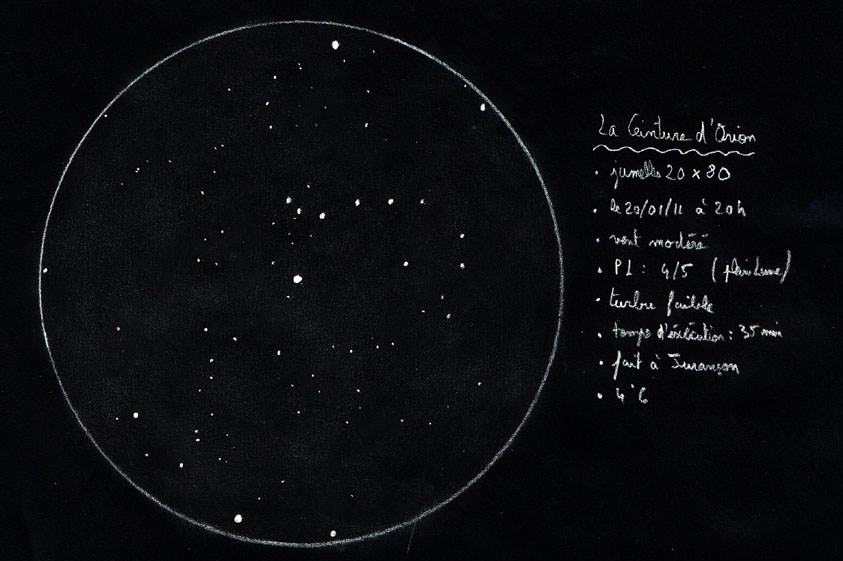 La Ceinture d'Orion
• jumelles 20 x 80
• le 20/01/11 à 20h
• vent modéré
• P L : 4/5 (pleine Lune)
• turbu faible
• temps d'éxécution : 35 min
• fait à Jurançon
• 4°C